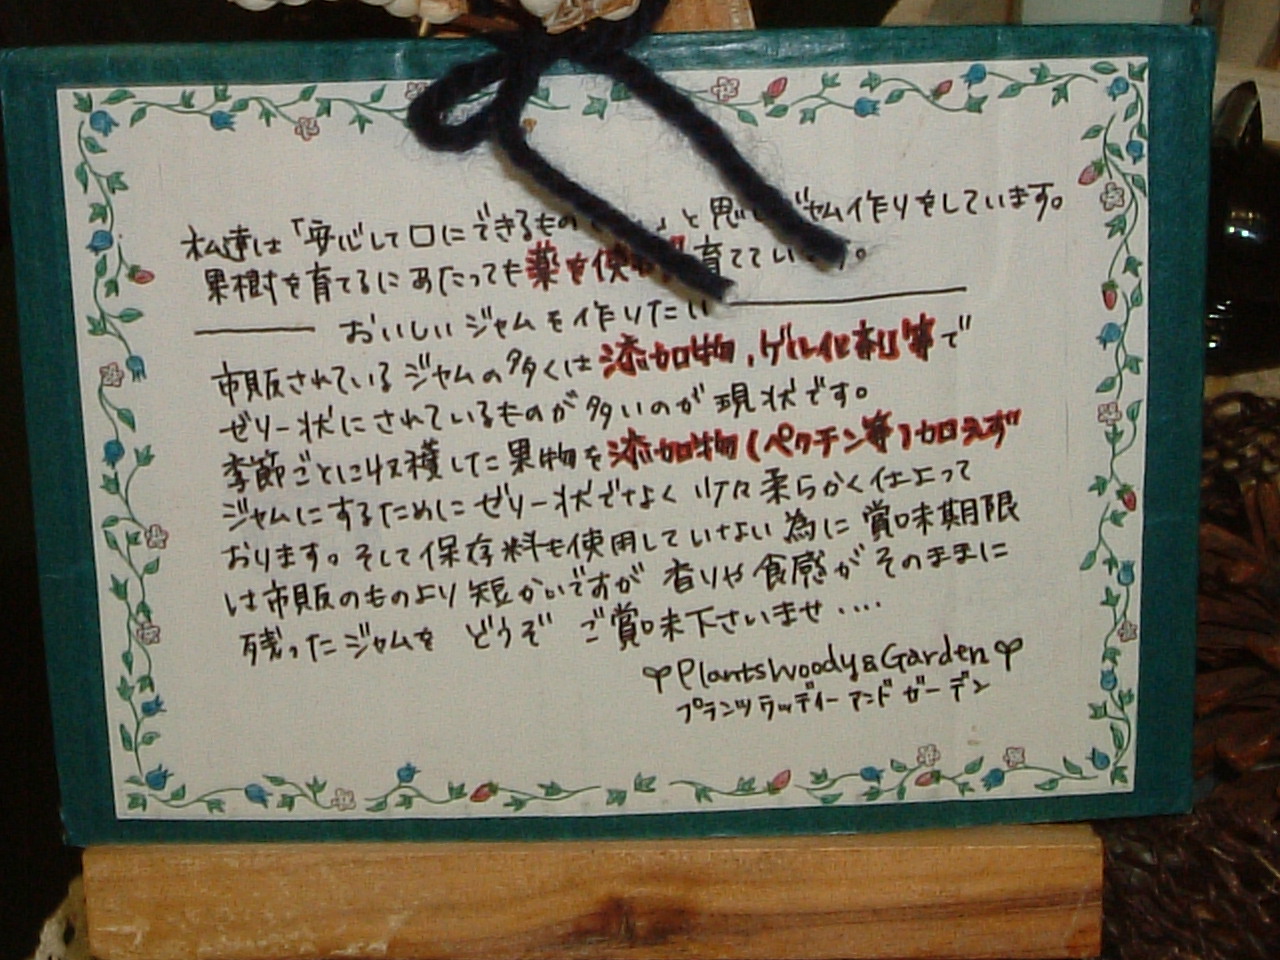 私達は「安心して口にできるもの 」と思い ジャム作りをしています。
果樹を育てるにあたっても薬を使わず育てています。
おいしいジャムを作りたい
市販されているジャムの多くは添加物、ゲル化剤等で
ゼリー状にされているものが多いのが現状です。
季節ごとに収穫した果物を添加物(ペクチン等)加えず
ジャムにするためにゼリー状でなく少々柔らかく仕上って
おります。そして保存料も使用していない為に賞味期限
は市販のものより短かいですが 香りや食感がそのままに
残ったジャムを どうぞ ご賞味下さいませ・・・・
Plants Woody & Garden
プランツウッディーアンドガーデン